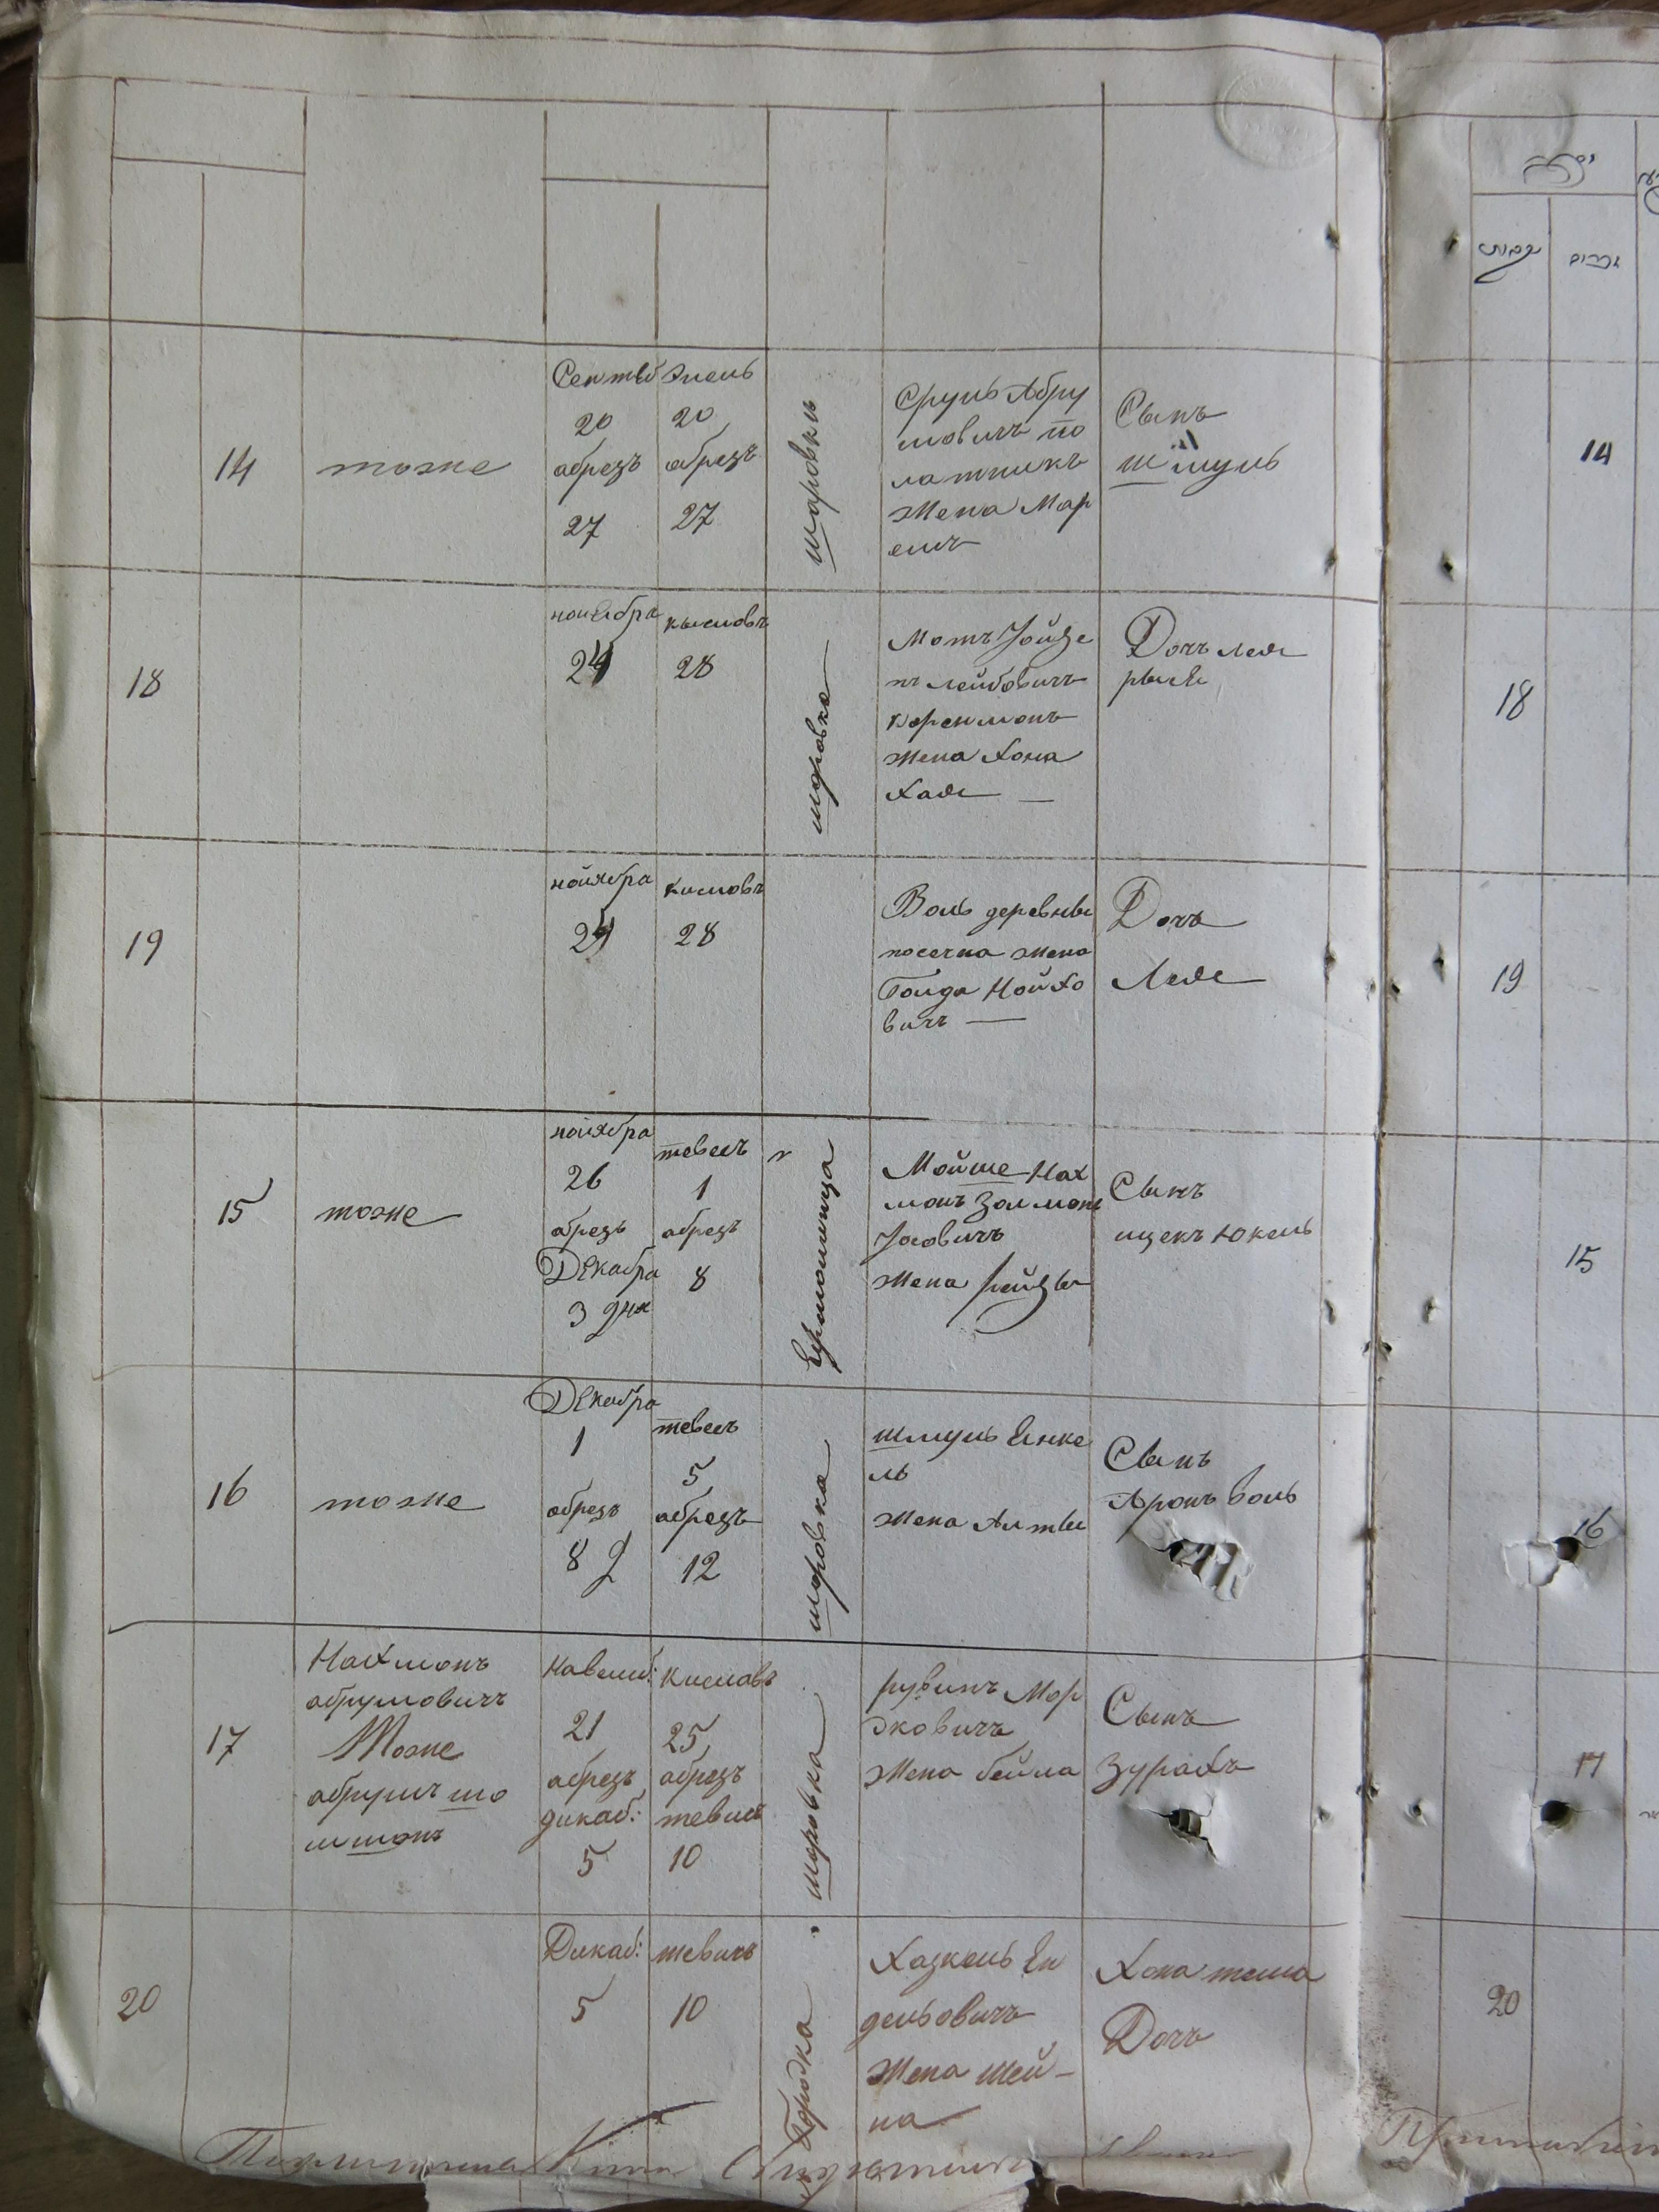 14
тоже
Сентяб
20
абрезъ
27
Элель
20
абрезъ
27
шаровка
Сруль Абру
мовичъ по
латникъ
Жена Мар
емъ
Сынъ
Шмуль
14
18
ноиября
24
кислов
28
шаровка
Мотъ Зойзе
нъ лейбовичъ
корснмонъ
жена Хона
Хая
Дочъ лея
рыся
18
19
нойября
24
кисловъ
28
Воль деревны
посечна жена
Голда Нойхо
вичъ
Дочъ
Лея
19
15
тоже
нойября
26
абрезъ
Декабра
3 дня
тевесъ
1
абрезъ
8
Ермолинца
Мойше Нах
монъ Залмонъ
Жена рейзы
Сынъ
ицекъ Юкель
15
16
тоже
Декабра
1
абрезъ
8 д
тевесъ
5
абрезъ
12
шаровка
шмуль Енке
ль
жена Алты
Сынъ
Аронъ воль
16
17
Нахмонъ
абрумовичъ
Тоже
абрумъ шо
шмонъ
Навемб:
21
абрезъ
дикаб:
5
кисловъ
25
абрезъ
тевисъ
10
шаровка
рувинъ Мор
дковичъ
Жена бейла
Сынъ
Зурахъ
17
20
Дикаб:
5
тевисъ
10
Городка
Хазкель Ен
дельовичъ
Жена шей-
на
Хона теша
Дочъ
20